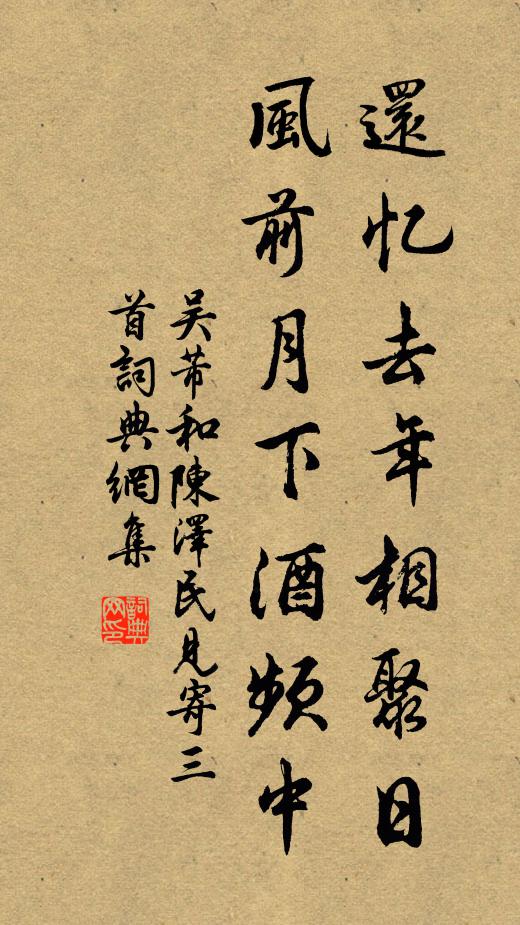 還忆去年相聚日
風前月下酒频中
吴芾和陳澤民見寄三
首詞典網集
詞典
网印